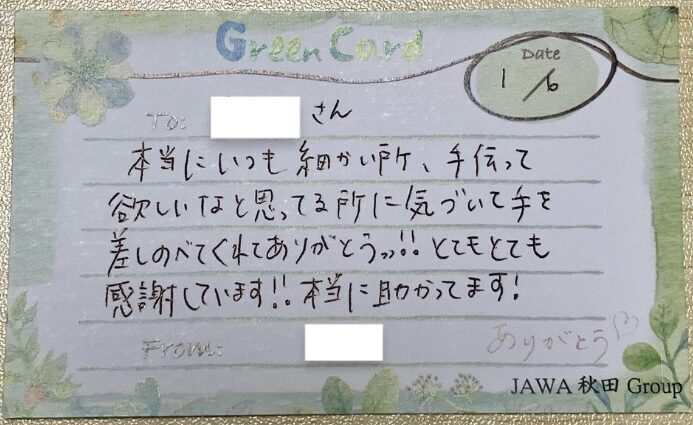 Green Card
Date
1/6
To:
さん
本当にいつも細かい所、手伝って
欲しいなと思ってる所に気づいて手を
差しのべてくれてありがとうッッ!! とてもとても
感謝しています!! 本当に助かってます!
From:
ありがとう♡
JAWA 秋田 Group